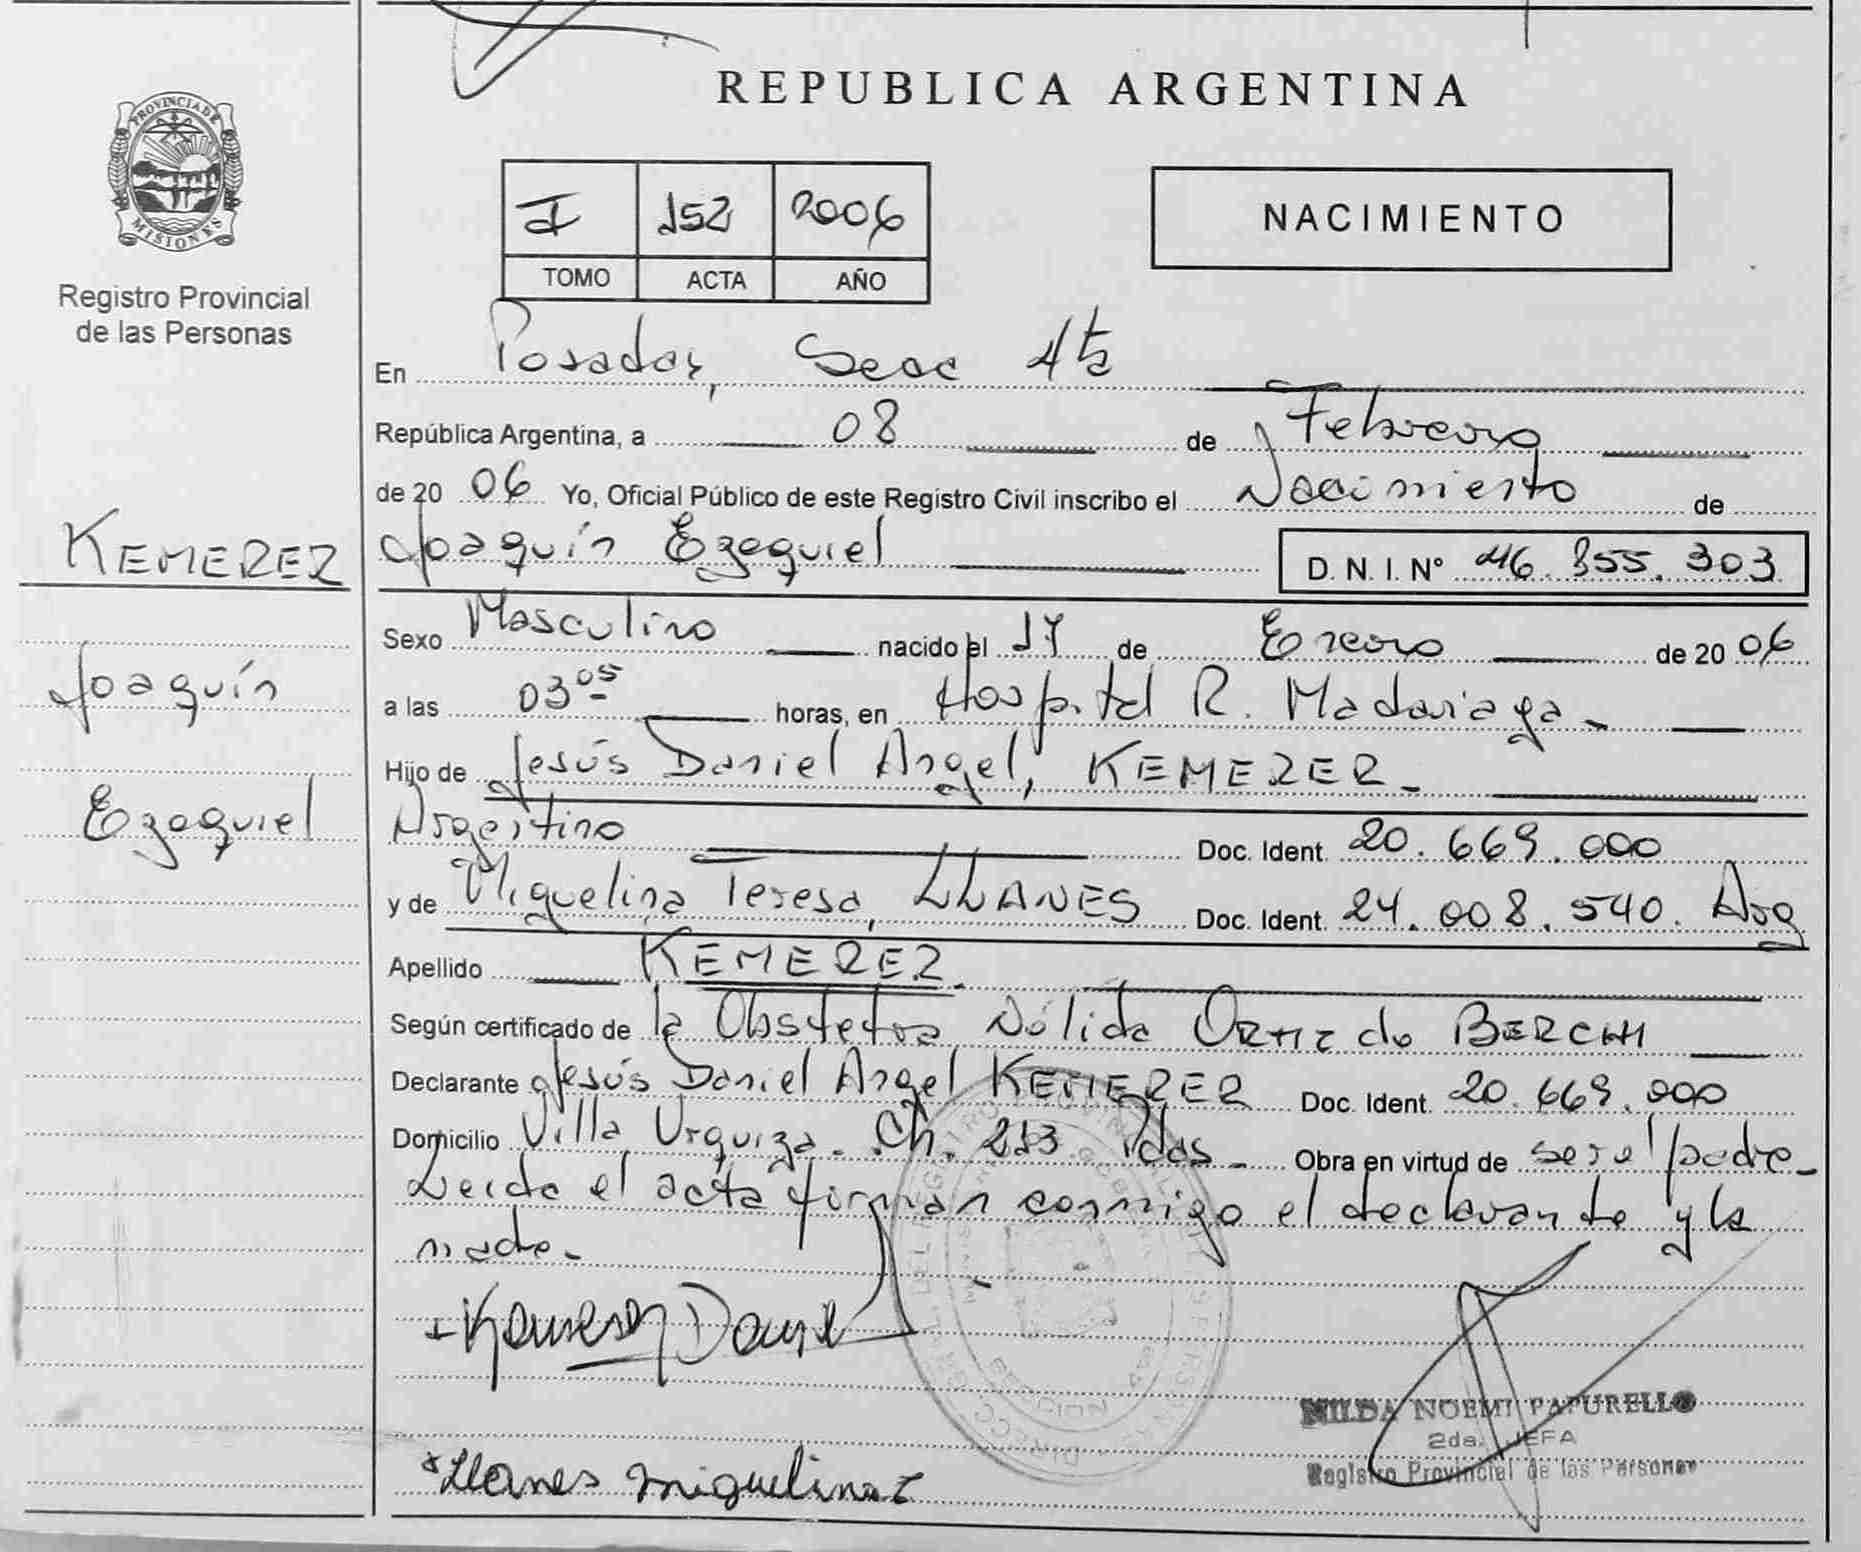 REPUBLICA ARGENTINA
PROVINCIA DE
MISIONES
Registro Provincial
de las Personas
I 152 2006
TOMO ACTA AÑO
NACIMIENTO
En Posadas, Secc 4ta
República Argentina, a 08 de Febrero
de 20 06 Yo, Oficial Público de este Registro Civil inscribo el Nacimiento de
KEMERER
Joaquín Ezequiel D. N. I. N° 46.855.303
Sexo Masculino nacido el 17 de Enero de 20 06
Joaquín
a las 03 05 horas, en Hospital R. Madariaga -
Hijo de Jesús Daniel Angel, KEMERER -
Ezequiel
Argentino Doc. Ident. 20.669.000
y de Miguelina Teresa, LLANES Doc. Ident. 24.008.540. Arg
Apellido KEMERER.
Según certificado de la Obstetra Nélida ORTIZ de BERCHI
Declarante Jesús Daniel Angel KEMERER Doc. Ident. 20.669.000
Domicilio Villa Urquiza. Ch. 213 Pdas - Obra en virtud de ser el padre -
Leida el acta firman conmigo el declarante y la
madre -
Kemerer Daniel
NILDA NOEMI PAPURELLO
2da. JEFA
Registro Provincial de las Personas
Llanes Miguelina T